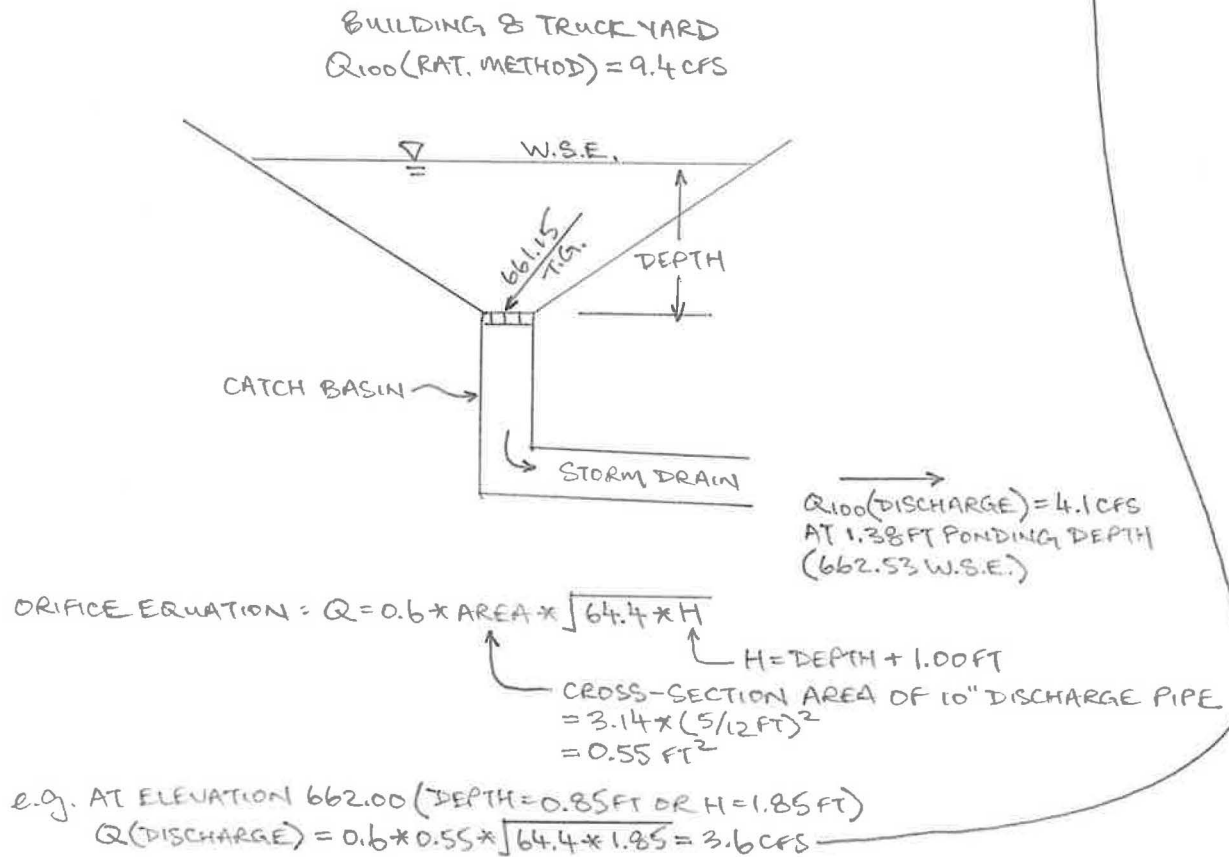 BUILDING & TRUCK YARD
Q100 (RAT. METHOD) = 9.4 CFS
W.S.E.
661.15
T.G.
DEPTH
CATCH BASIN
STORM DRAIN
Q100 (DISCHARGE) = 4.1 CFS
AT 1.38 FT PONDING DEPTH
(662.53 W.S.E.)
ORIFICE EQUATION: Q = 0.6 * AREA * √64.4 * H
H = DEPTH + 1.00 FT
CROSS-SECTION AREA OF 10" DISCHARGE PIPE
= 3.14 * (5/12 FT)²
= 0.55 FT²
e.g. AT ELEVATION 662.00 (DEPTH = 0.85 FT OR H = 1.85 FT)
Q (DISCHARGE) = 0.6 * 0.55 * √64.4 * 1.85 = 3.6 CFS